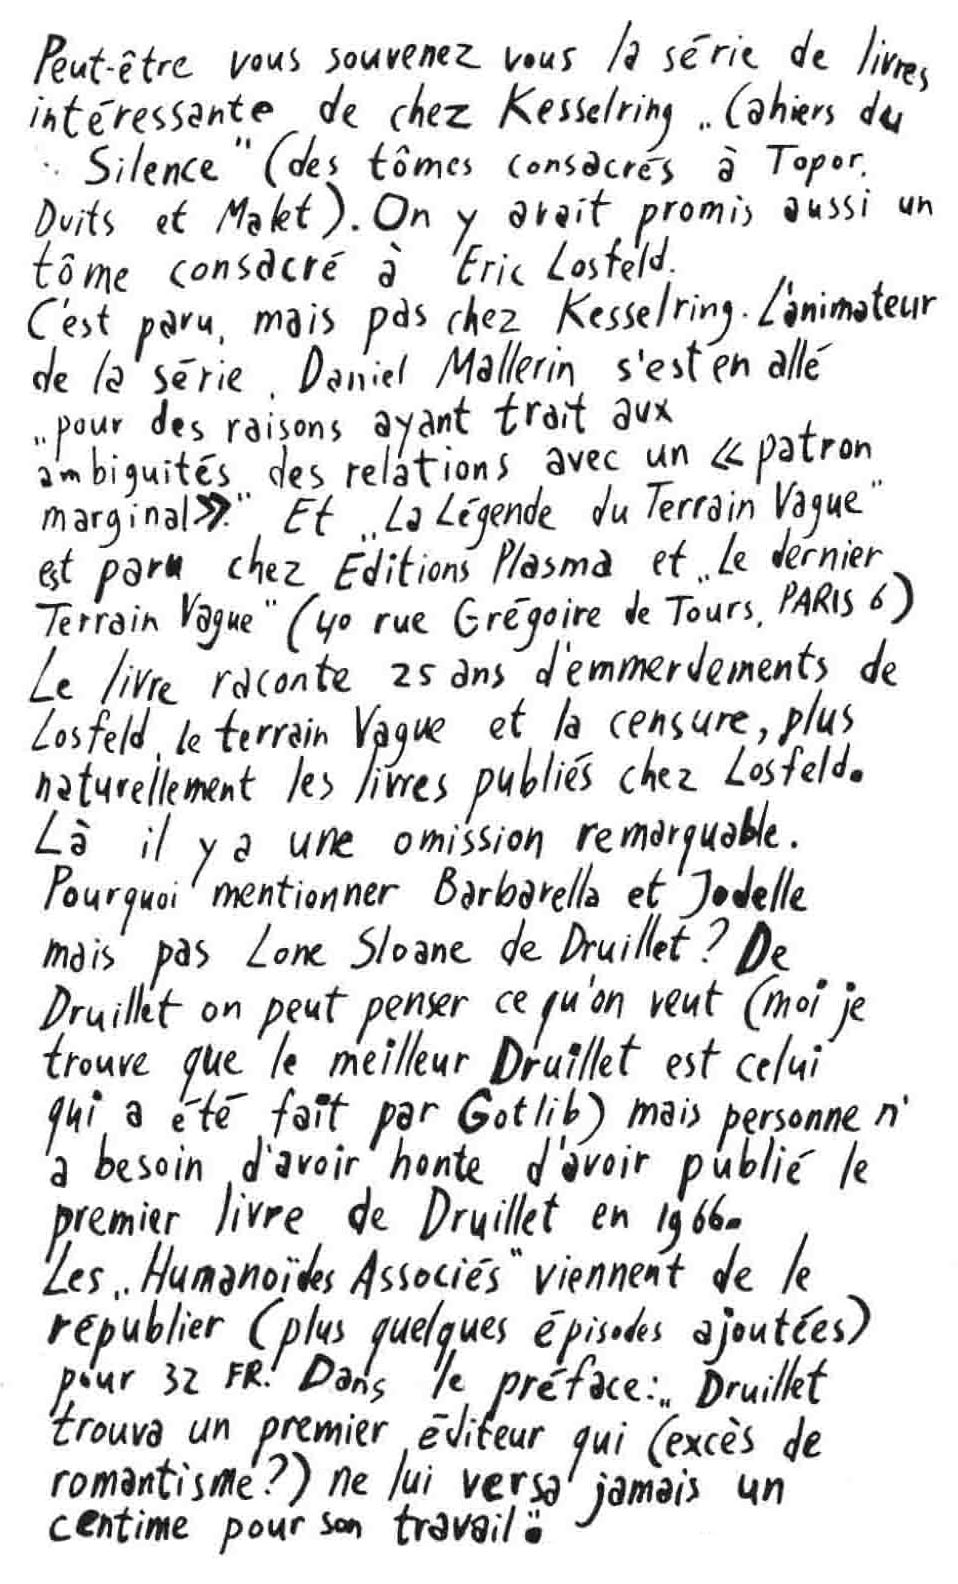 Peut-être vous souvenez vous la série de livres
intéressante de chez Kesselring „Cahiers du
Silence" (des tômes consacrés à Topor,
Duits et Maket). On y avait promis aussi un
tôme consacré à Eric Losfeld.
C'est paru, mais pas chez Kesselring. L'animateur
de la série, Daniel Mallerin s'est en allé
„pour des raisons ayant trait aux
ambiguités des relations avec un « patron
marginal»." Et „La Légende du Terrain Vague"
est paru chez Editions Plasma et „Le dernier
Terrain Vague" (40 rue Grégoire de Tours, PARIS 6)
Le livre raconte 25 ans d'emmerdements de
Losfeld, le terrain Vague et la censure, plus
naturellement les livres publiés chez Losfeld.
Là il y a une omission remarquable.
Pourquoi mentionner Barbarella et Jodelle
mais pas Lone Sloane de Druillet? De
Druillet on peut penser ce qu'on veut (moi je
trouve que le meilleur Druillet est celui
qui a été fait par Gotlib) mais personne n'
a besoin d'avoir honte d'avoir publié le
premier livre de Druillet en 1966.
Les „Humanoïdes Associés" viennent de le
republier (plus quelques épisodes ajoutées)
pour 32 FR. Dans le préface: „Druillet
trouva un premier éditeur qui (excès de
romantisme?) ne lui versa jamais un
centime pour son travail".